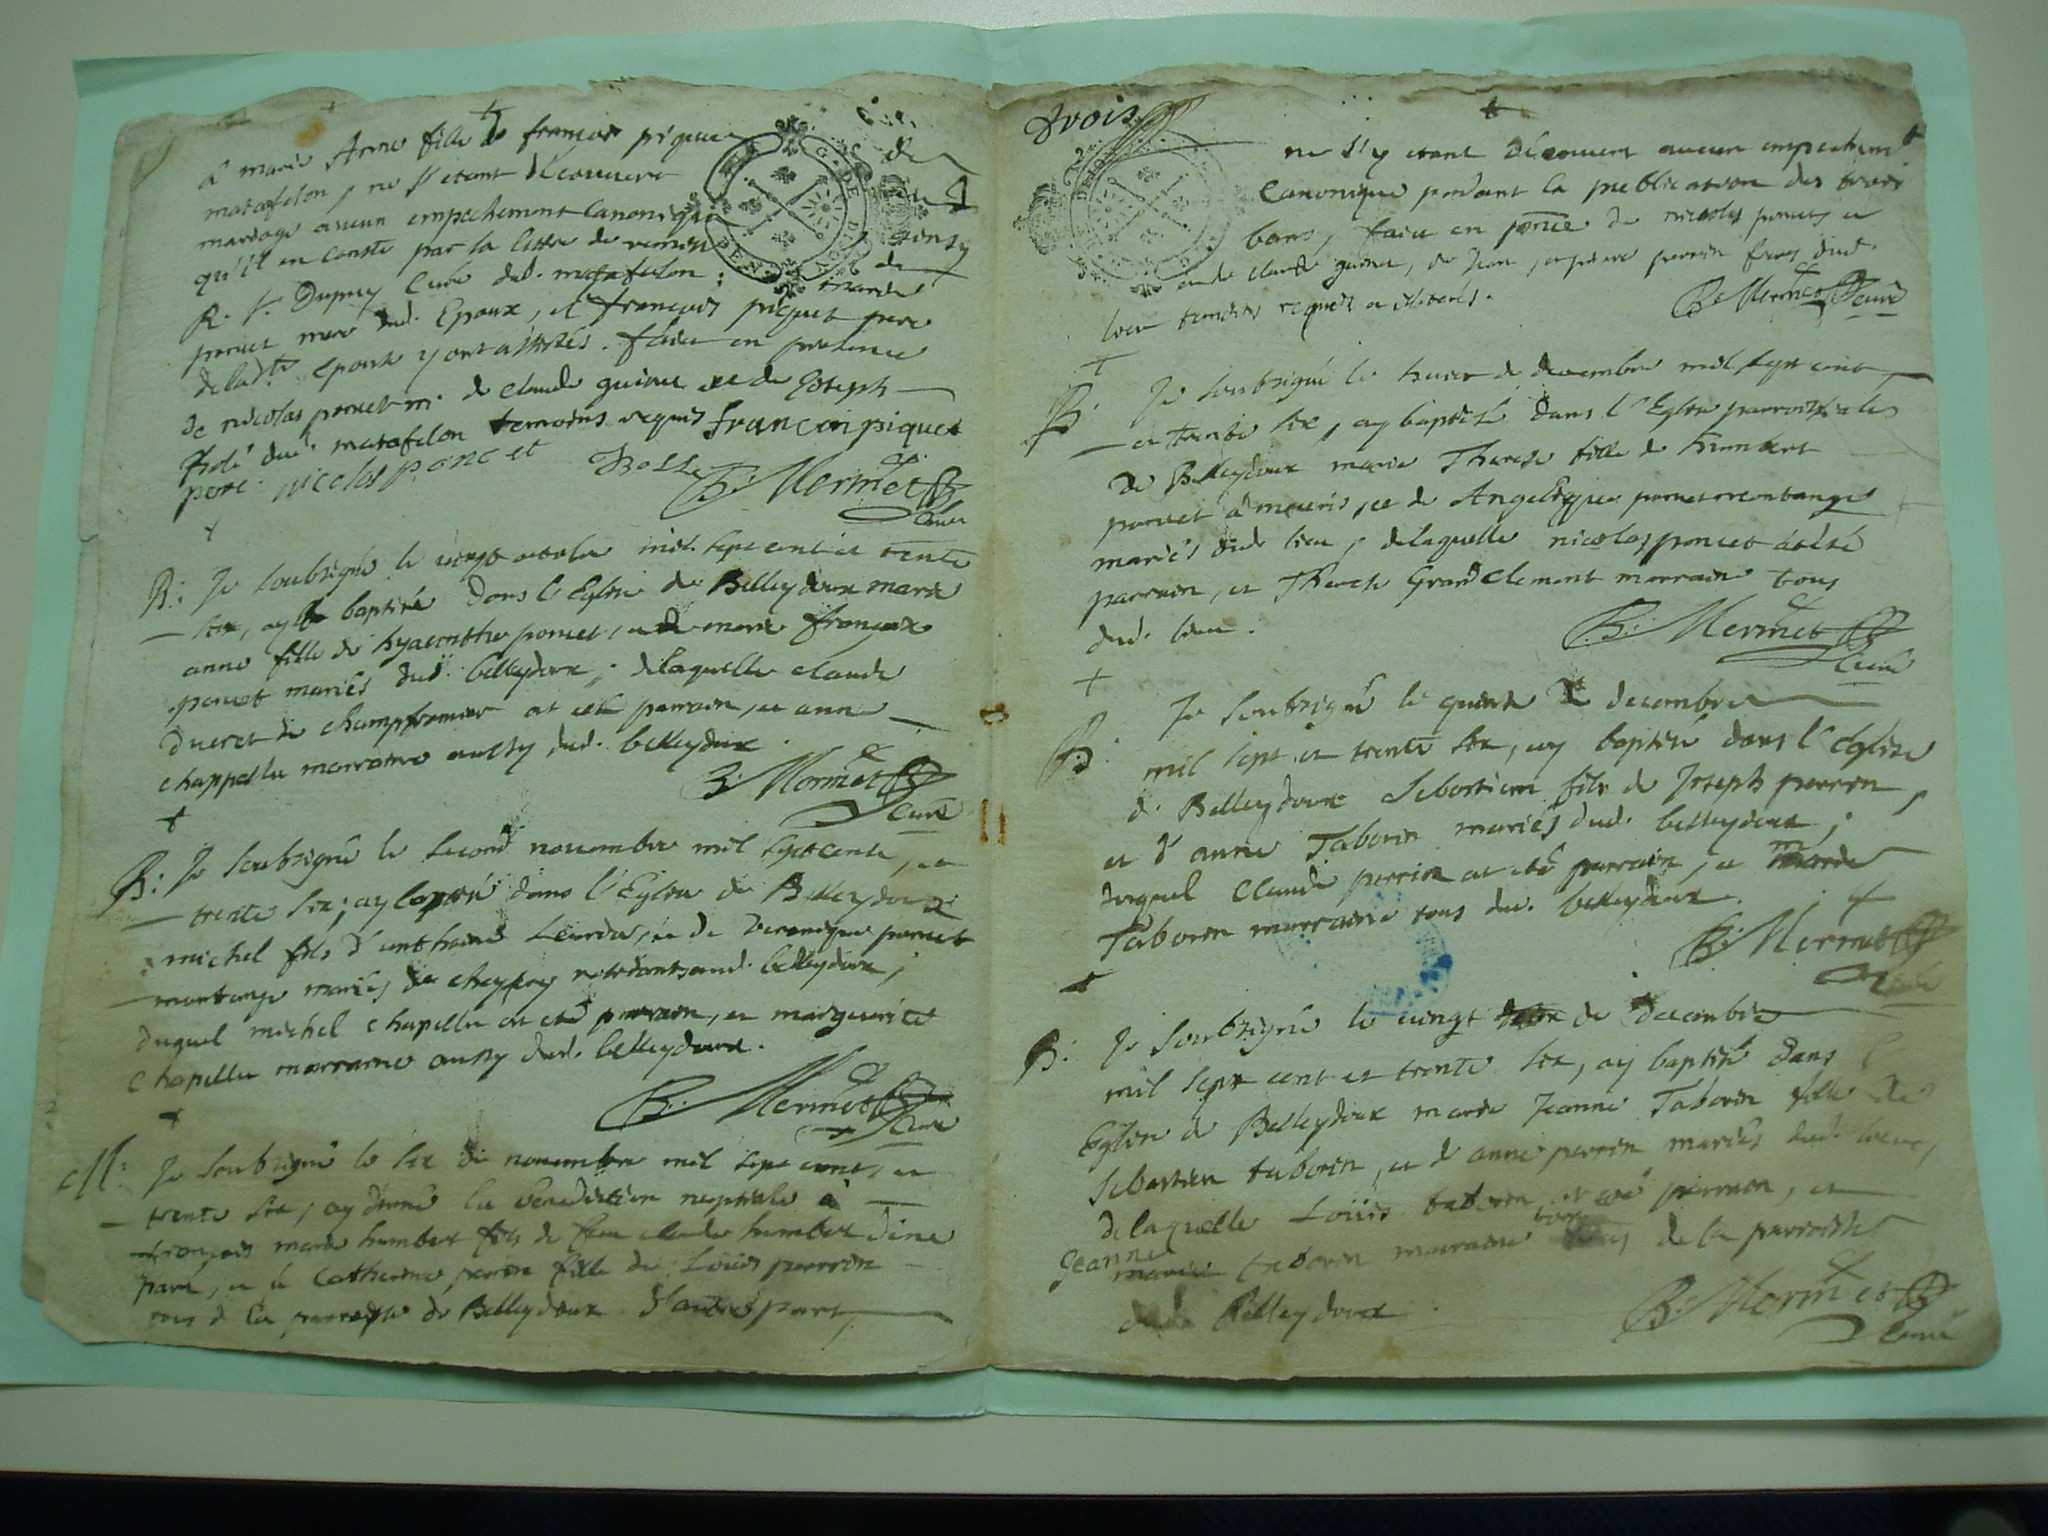 à marie Anne fille de francois piquet
matafelon, ne s'etant decouvert
mariage aucun empechement canonique
qu'il en conste par la lettre de remise
R. Sr. Dupuy Curé dud. matafelon;
poncet mere dud. Epoux, et françois piquet pere
de ladte. Epouse y ont assistés. faict en presence
de nicolas poncet m. de claude guinet et de Joseph
dud. matafelon temoins requis francoi piquet
pere nicolas poncet B. Mermet
Curé
B: Je soubsigné le vingt octobre mil sept cent et trente
six, ay baptisé dans l'Eglise de Belleydoux marie
anne fille de hyacinthe poncet, et de marie françoise
poncet mariés dud. belleydoux; delaquelle claude
ducret de champfromier at esté parrain, et anne
chappellu marraine aussy dud. belleydoux.
B: Mermet
Curé
B: Je soubsigné le second novembre mil sept cents, et
trente six, ay baptisé dans l'Eglise de Belleydoux
michel fils d'anthoine et de Veronique poncet
montange mariés de residants aud. belleydoux;
duquel michel chapellu at esté parrain, et marguerite
chapellu marraine aussy dud. belleydoux.
B: Mermet
Curé
M: Je soubsigné le six de novembre mil sept cent, et
trente six, ay donné la benediction nuptiale à
françois marie humbert fils de feu claude humbert d'une
part, et à Catherine perrin fille de Loüis perrin
tous de la parroisse de Belleydoux d'autre part,
trois
ne s'y etant decouvert aucun empechemt.
Canonique pendant la publication des trois
bans, faict en pnce de nicolas poncet, et
de claude guinet, de Jean, et pierre perrin freres dud.
lieu temoins requis
B: Mermet Curé
B: Je soubsigné le de decembre mil sept cent
et trente six, ay baptisé dans l'Eglise parroissiale
de Belleydoux marie Therese fille de humbert
poncet et de Angelique poncet montange
mariés dud. lieu, delaquelle nicolas poncet at esté
parrain, et Therese Grandclement marraine tous
dud. lieu.
B: Mermet
Curé
B: Je soubsigné le quinze de decembre
mil sept et trente six, ay baptisé dans l'Eglise
de Belleydoux Sebastien fils de Joseph perrin,
et d'anne Taborin mariés dud. belleydoux;
duquel Claude perrin at esté parrain, et marie
Taborin marraine tous dud. belleydoux.
B: Mermet
Curé
B: Je soubsigné le vingt de decembre
mil sept cent et trente six, ay baptisé dans l'
Eglise de Belleydoux marie Jeanne Taborin fille de
Sebastien taborin, et d'anne perrin mariés dud. lieu,
delaquelle Loüis taborin at esté parrain, et
Jeanne taborin marraine tous de la parroisse
dud. Belleydoux.
B: Mermet
Curé